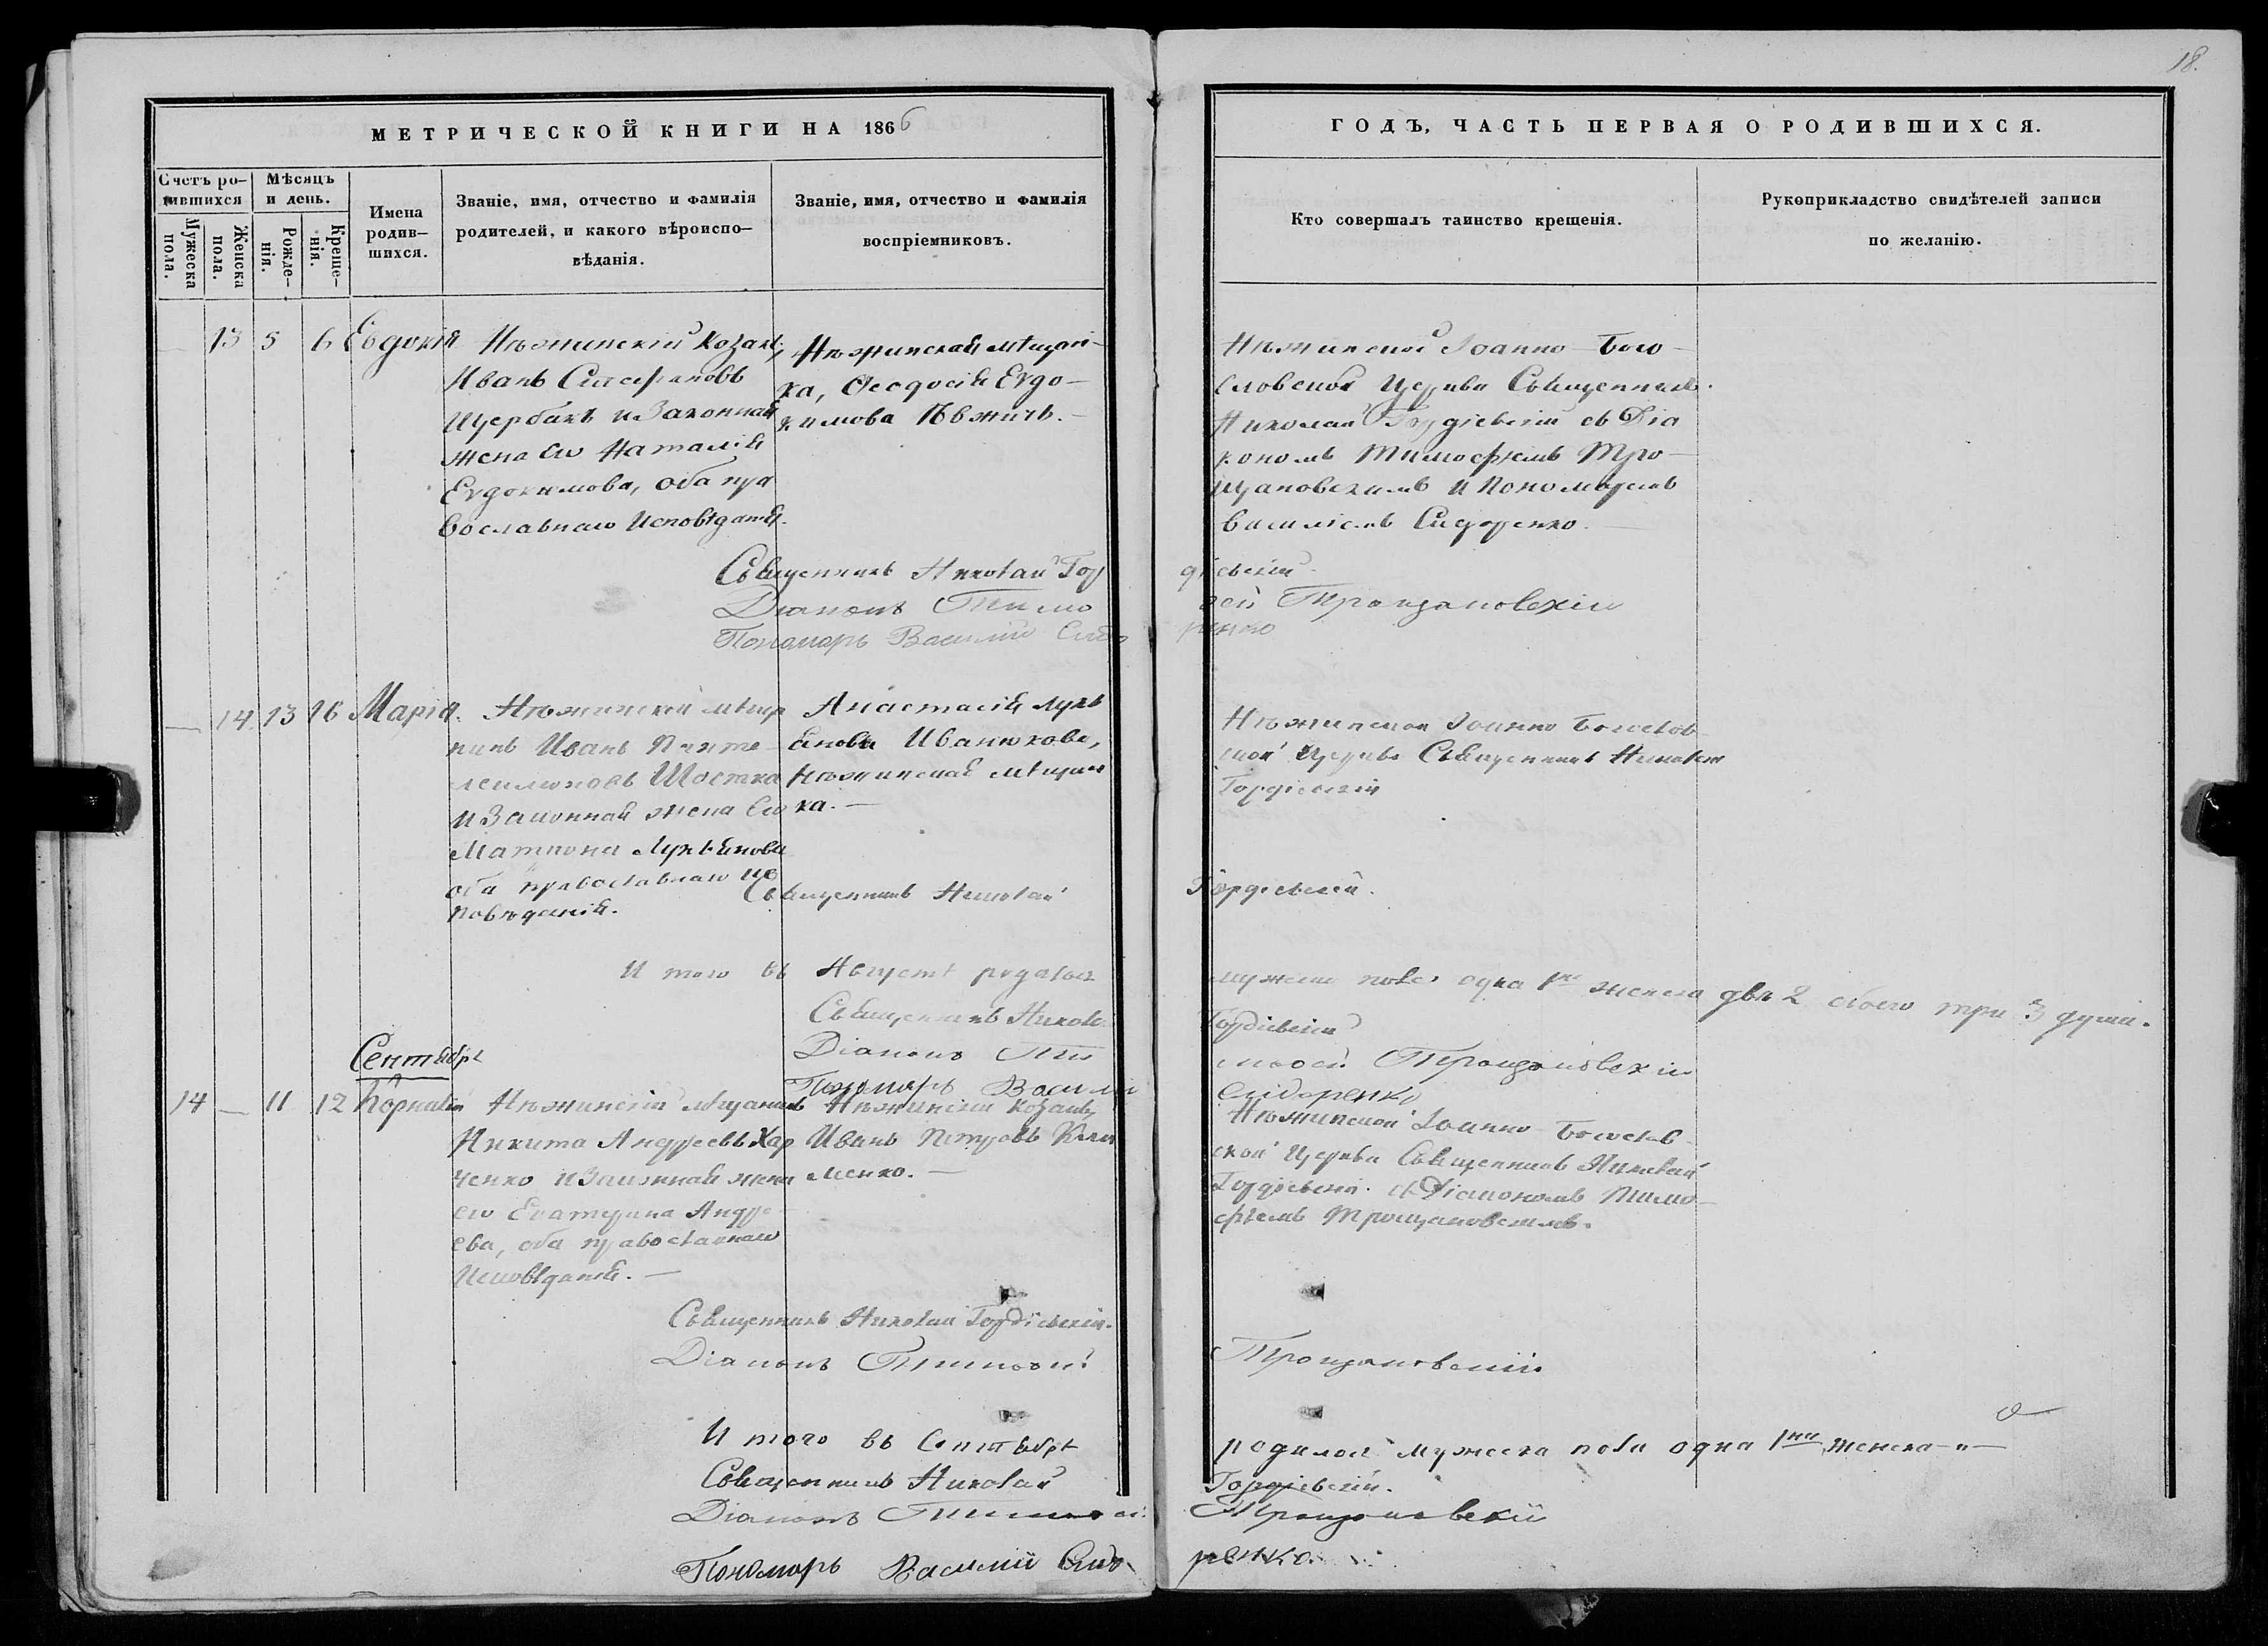 18.
МЕТРИЧЕСКОЙ КНИГИ НА 1866
ГОДЪ, ЧАСТЬ ПЕРВАЯ О РОДИВШИХСЯ.
Счетъ ро-
дившихся
Мужеска пола.
Женска пола.
Мѣсяцъ
и день.
Рожде-
нія.
Креще-
нія.
Имена
родив-
шихся.
Званіе, имя, отчество и фамилія
родителей, и какого вѣроиспо-
вѣданія.
Званіе, имя, отчество и фамилія
воспріемниковъ.
Кто совершалъ таинство крещенія.
Рукоприкладство свидѣтелей записи
по желанію.
— 13 5 6 Евдокія
Нѣжинскій козакъ,
Иванъ Стефановъ
Щербакъ и Законная
жена его Наталія
Евдокимова, оба пра
вославнаго Исповѣданія.
Нѣжинская мѣщан-
ка, Феодосія Евдо-
кимова
Нѣжинской Іоанно-Бого-
словской Церкви Священникъ
Николай Гордіевскій съ Діа
кономъ Тимофѣемъ Тро-
щановскимъ и Пономаремъ
Василіемъ Сидоренко.
Священникъ Николай Гордіевскій
Діаконъ Тимофей Трощановскій
Пономарь Василий Сидоренко
— 14 13 16 Марія.
Нѣжинскій мѣща
нинъ Иванъ Панте-
леимоновъ Шостка
и Законная жена Его
Матрона Лукьянова
оба православнаго ис
повѣданія.
Анастасія Лукь
янова Иванюкова,
Нѣжинская мѣщан
ка. —
Нѣжинской Іоанно Богослов-
ской Церкви Священникъ Николай
Гордіевскій
Священникъ Николай Гордіевскій.
И того въ Августѣ родилось мужеска пола одна 1 женска двѣ 2 обоего три 3 души.
Священникъ Николай Гордіевскій
Діаконъ Тимофей Трощановскій
Пономарь Василій Сидоренко
Сентябрь
14 — 11 12 Корнилій
Нѣжинскій мѣщанинъ
Никита Андреевъ Хар
ченко и Законная жена
его Екатерина Андре
ева, оба православнаго
Исповѣданія. —
Нѣжинскій козакъ,
Иванъ Петровъ Кли
менко. —
Нѣжинской Іоанно Богослов-
ской Церкви Священникъ Николай
Гордіевскій. съ Діакономъ Тимо-
фѣемъ Трощановскимъ.
Священникъ Николай Гордіевскій.
Діаконъ Тимофей Трощановскій
И того въ Сентябрѣ родилось мужеска пола одна 1 женска —
Священникъ Николай Гордіевскій.
Діаконъ Тимофей Трощановскій
Пономарь Василий Сидоренко.